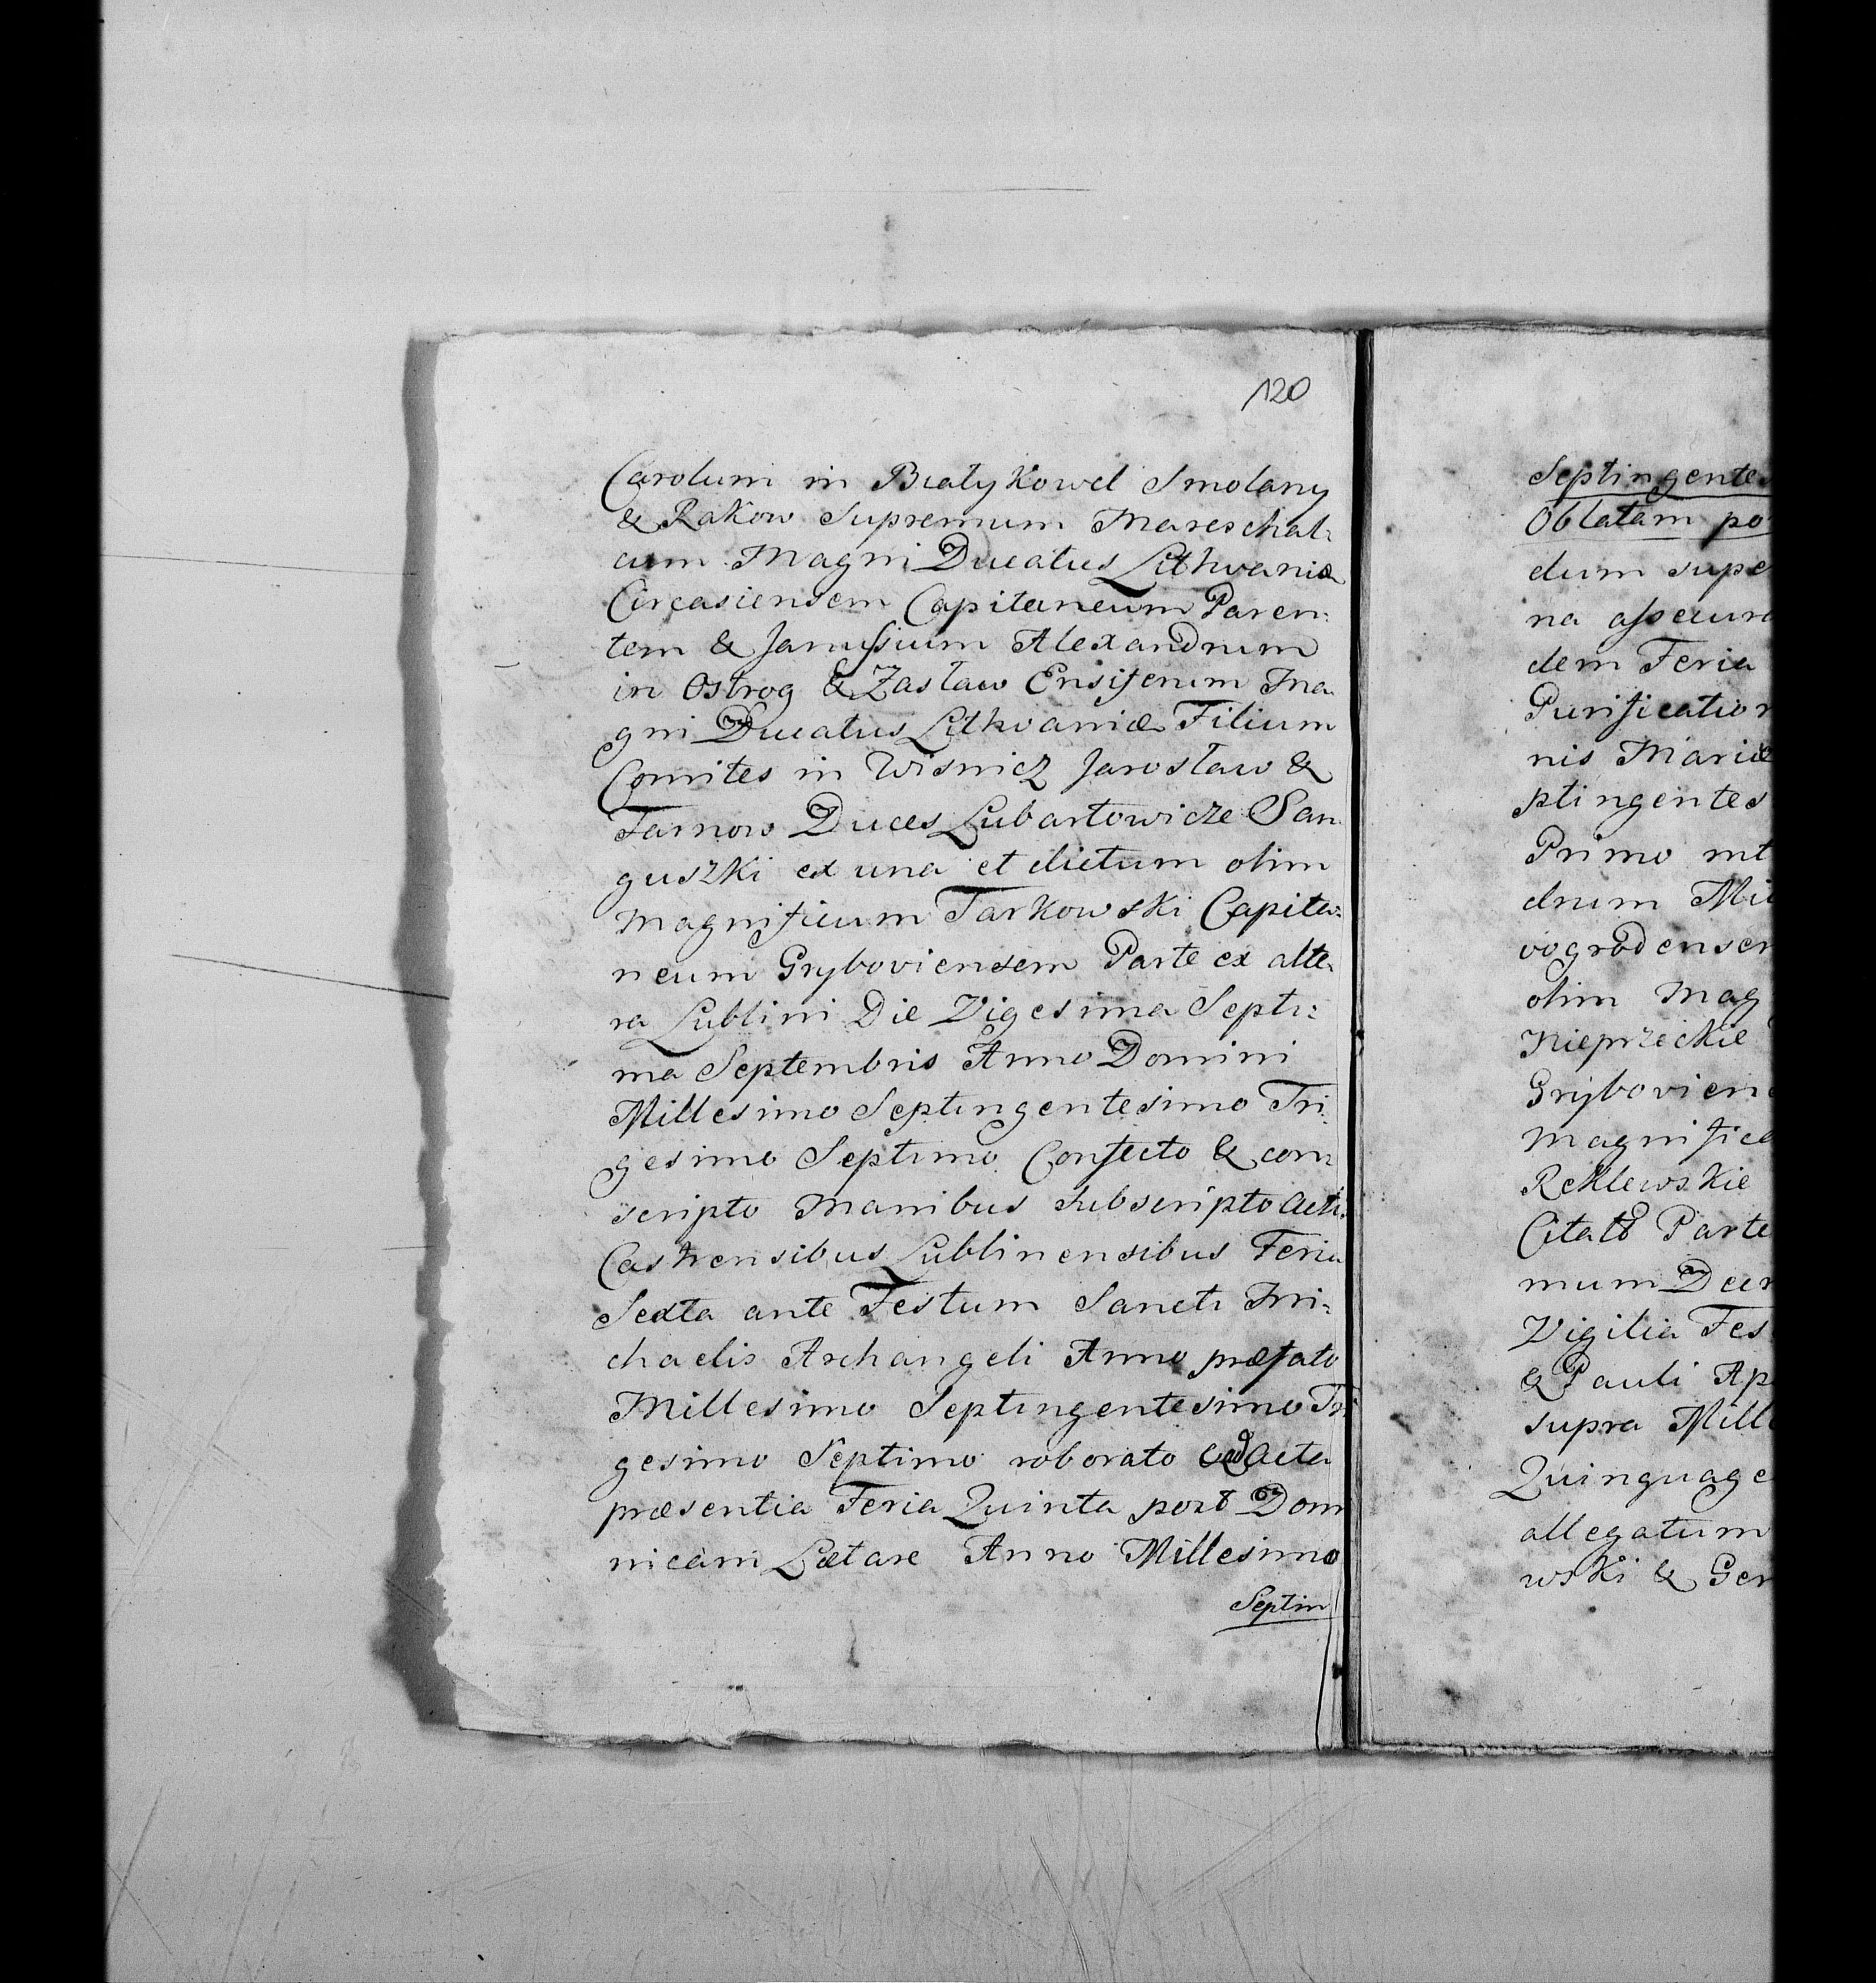 120
Carolum in Białykowel Smolany
& Rakow Supremum Mareschal:
cum Magni Ducatus Lithvaniæ
Circasiensem Capitaneum Paren:
tem & Janussium Alexandrum
in Ostrog & Zasław Ensiferum Ma
gni Ducatus Lithvaniæ Filium
Comites in Wisnicz Jarosław &
Tarnow Duces Lubartowicze San
guszki ex una et dictum olim
Magnificum Tarkowski Capita:
neum Gryboviensem Parte ex alte
ra Lublini Die Vigesima Septi:
ma Septembris Anno Domini
Millesimo Septingentesimo Tri
gesimo Septimo Confecto & con
scripto Manibus subscripto Acti
Castrensibus Lublinensibus Feria
Sexta ante Festum Sancti Mi:
chaelis Archangeli Anno præfato
Millesimo Septingentesimo Tri
gesimo Septimo roborato ad Acta
præsentia Feria Quinta post Dom
nicam Lætare Anno Millesimo
Septin
Septingentes
Oblatam po
dum supe
na assecura
dem Feria
Purification
nis Mariæ
ptingentes
Primo int
drum Mi
vogrodensem
olim Mag
Nieprzeckie
Grybovien
Magnific
Reklewskie
Citato Parte
mum Decr
Vigilia Fes
& Pauli Ap
supra Mill
Quinguage
allegatum
wski & Gen